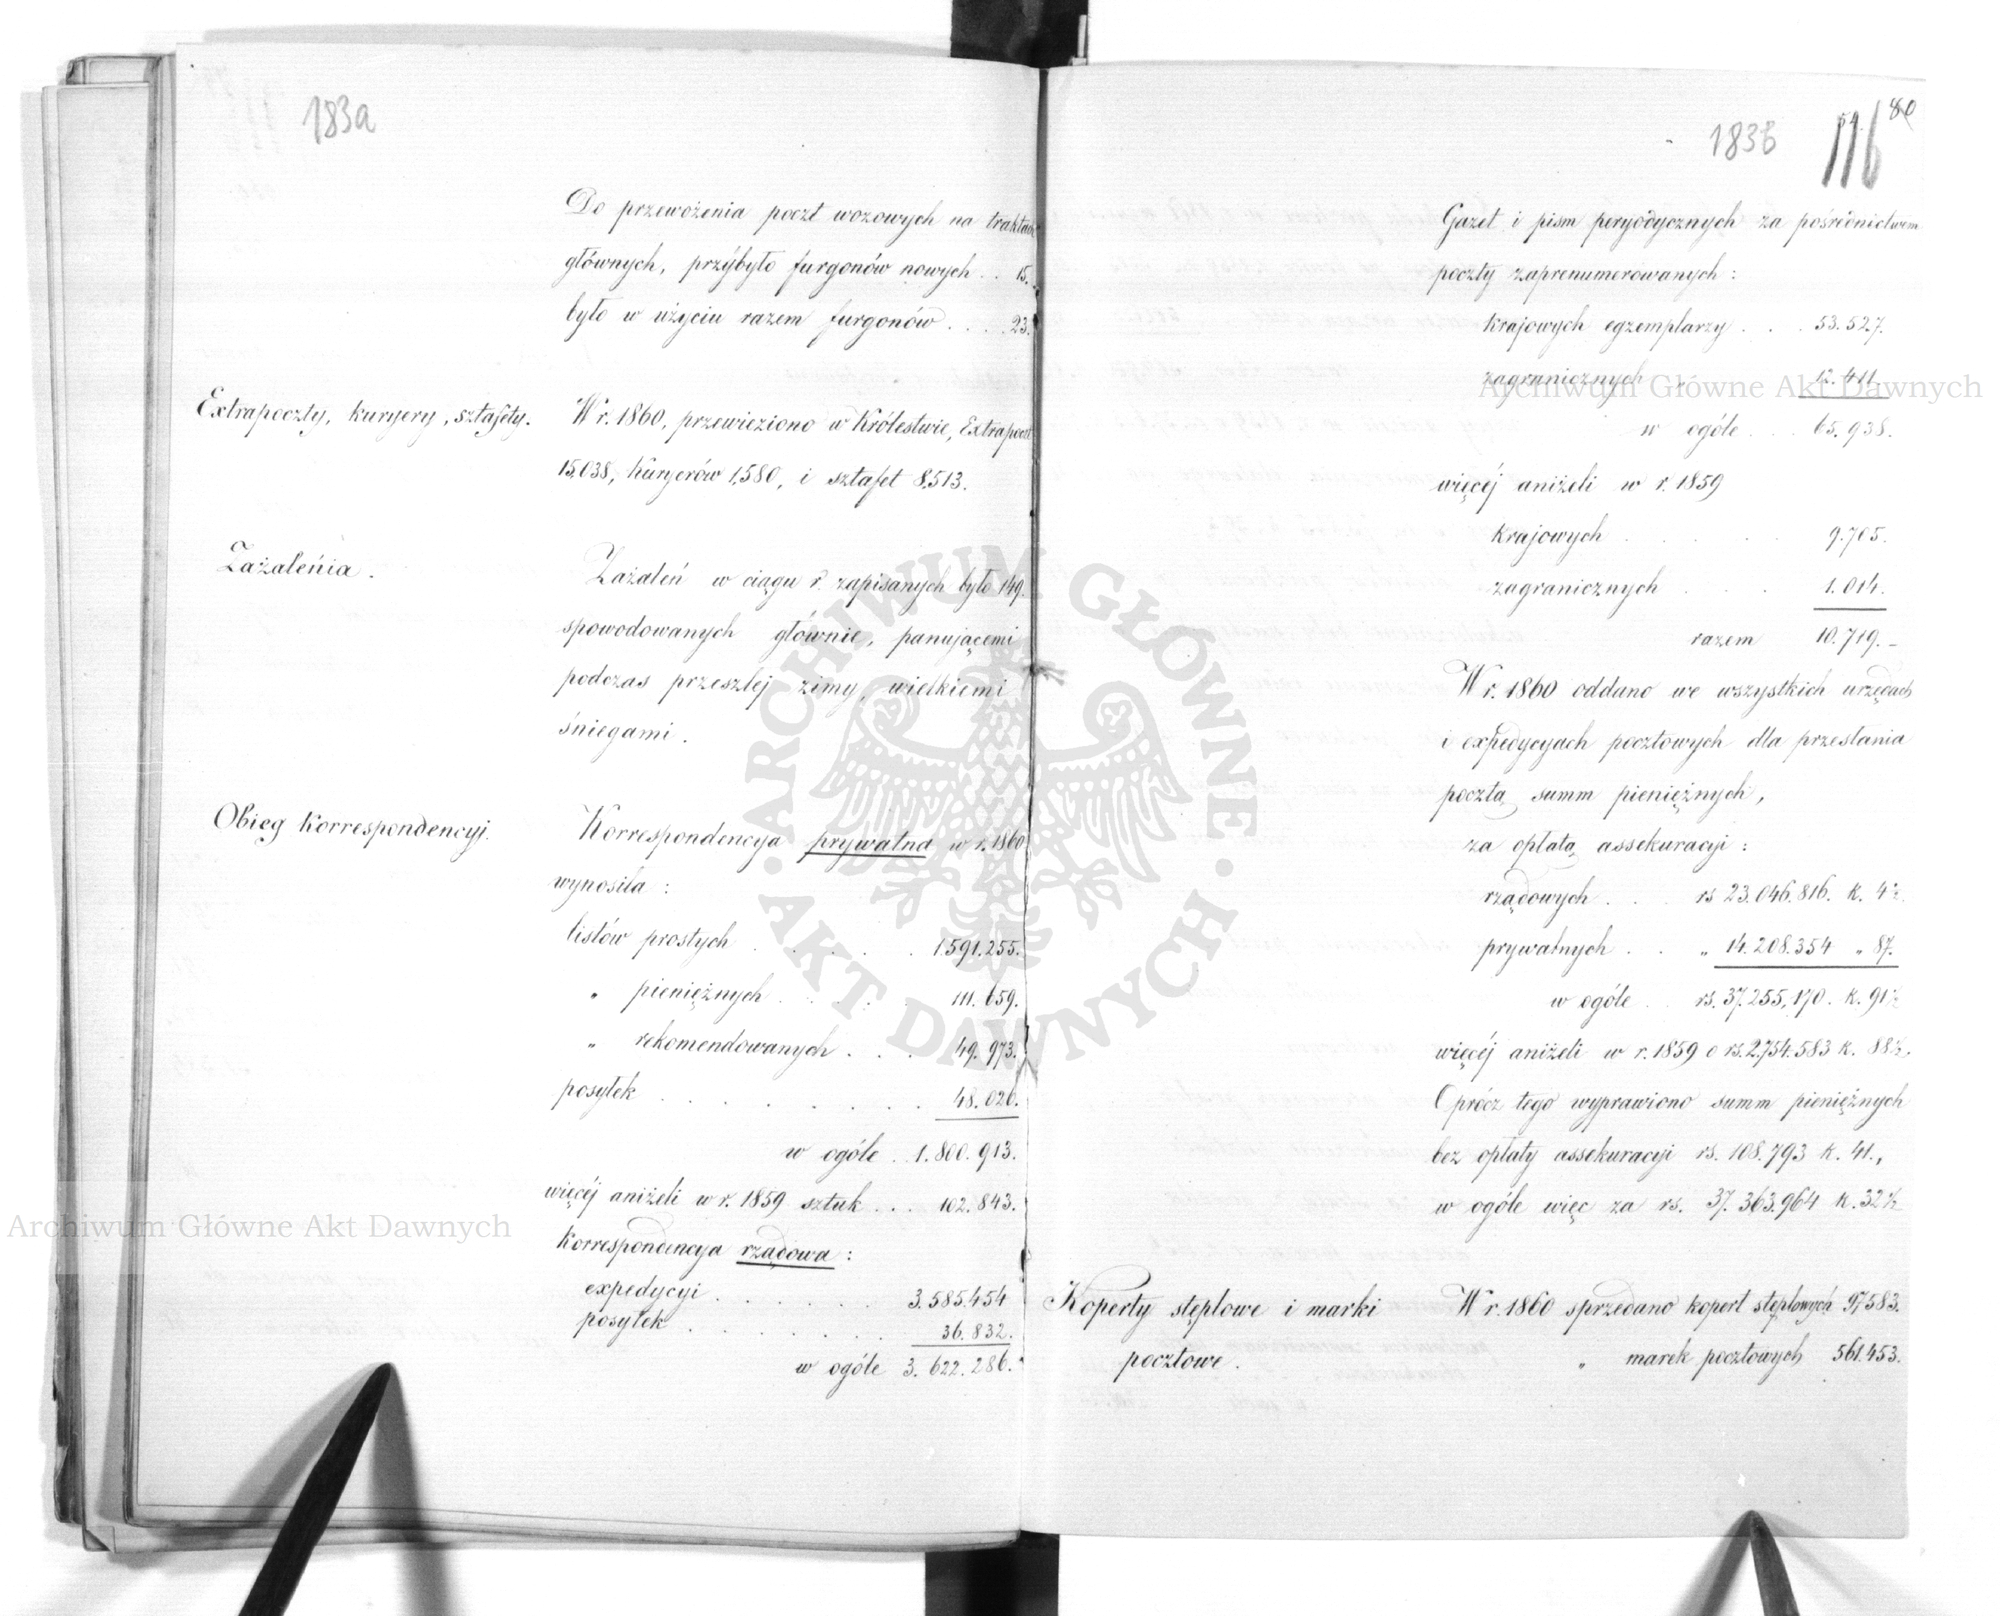 183a
Do przewożenia poczt wozowych na traktach
głównych, przybyło furgonów nowych . . 15.
było w użyciu razem furgonów . . . . 23.
Extrapoczty, kuryery, sztafety.
W r. 1860, przewieziono w Królestwie, Extrapoczt
15,038, Kuryerów 1,580, i sztafet 8,513.
Zażalenia.
Zażaleń w ciągu r. zapisanych było 149.
spowodowanych głównie, panującemi
podczas przeszłej zimy, wielkiemi
śniegami.
Obieg Korrespondencyj.
Korrespondencya prywatna w r. 1860
wynosiła :
listów prostych . . . . . 1.591.255.
„ pieniężnych . . . . . 111.659.
„ rekomendowanych . . . 49.973.
posyłek . . . . . . . . 48.026.
w ogóle . 1.800.913.
więcéj aniżeli w r. 1859 sztuk . . . 102.843.
Korrespondencya rządowa :
expedycyi . . . . . . 3.585.454
posyłek . . . . . . . 36.832.
w ogóle 3.622.286.
183b
116
80
Gazet i pism peryodycznych za pośrednictwem
poczty zaprenumerowanych :
Krajowych egzemplarzy . . . 53.527.
zagranicznych „ 12.411
w ogóle . . . 65.938.
więcéj aniżeli w r. 1859
Krajowych . . . . . 9.705.
zagranicznych . . . 1.014.
razem 10.719. –
W r. 1860 oddano we wszystkich urzędach
i expedycyach pocztowych dla przesłania
pocztą summ pieniężnych,
za opłatą assekuracyi :
rządowych . . . rs 23.046.816. k. 4½.
prywatnych . . „ 14.208.354 „ 87.
w ogóle . . rs. 37.255,170. k. 91½
więcéj aniżeli w r. 1859 o rs. 2.754.583 k. 88½.
Oprócz tego wyprawiono summ pieniężnych
bez opłaty assekuracyi rs. 108.793 k. 41.,
w ogóle więc za rs. 37.363.964 k. 32½
Koperty stęplowe i marki
pocztowe.
W r. 1860 sprzedano kopert stęplowych 97583.
„ marek pocztowych 561.453.
Archiwum Główne Akt Dawnych
Archiwum Główne Akt Dawnych
ARCHIWUM GŁÓWNE · AKT DAWNYCH ·